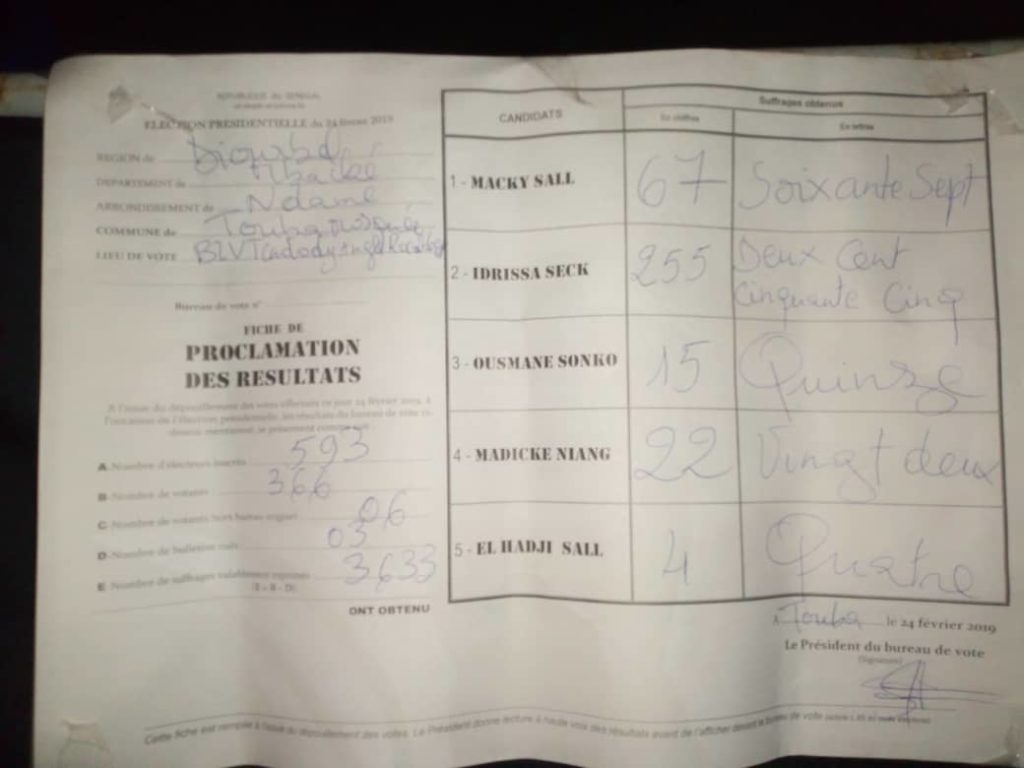 REPUBLIQUE du SENEGAL
ELECTION PRESIDENTIELLE du 24 février 2019
REGION de Diourbel
DEPARTEMENT de Mbacké
ARRONDISSEMENT de Ndame
COMMUNE de Touba mosquée
LIEU DE VOTE
Bureau de vote n°
FICHE DE
PROCLAMATION
DES RESULTATS
A l'issue du dépouillement des votes effectués ce jour 24 février 2019, à
l'occasion de l'élection présidentielle, les résultats du bureau de vote
A- Nombre d'électeurs inscrits 593
B- Nombre de votants 366
C- Nombre de votants hors bureau 06
D- Nombre de bulletins nuls 03
E- Nombre de suffrages valablement exprimés 3633
(E = B - D)
ONT OBTENU
CANDIDATS
Suffrages obtenus
En chiffres
En lettres
1 - MACKY SALL 67 Soixante Sept
2 - IDRISSA SECK 255 Deux Cent
Cinquante Cinq
3 - OUSMANE SONKO 15 Quinze
4 - MADICKE NIANG 22 Vingt deux
5 - EL HADJI SALL 4 Quatre
A Touba le 24 février 2019
Le Président du bureau de vote
(Signature)
Cette fiche est remplie à l'issue du dépouillement des votes. Le Président donne lecture à haute voix des résultats avant de l'afficher devant le bureau de vote